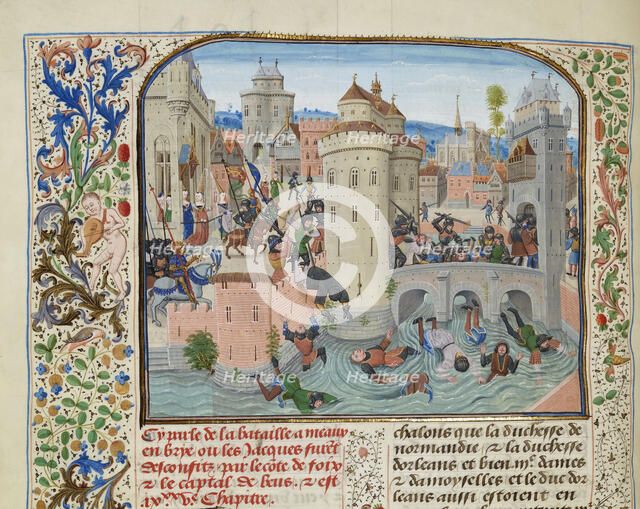 Heritage
Heritage
Heritage
Heritage
Heritage
Heritage
Cy parle de la bataille a meaux
en brye ou les Jacques furet
desconfitz par le côte de foix
z le captal de beus. z est
chapitre.
chalons que la duchesse de
normandie z la duchesse
dorleans et bien .m. dames
z damoyselles et le duc dor
leans aussi estoient en